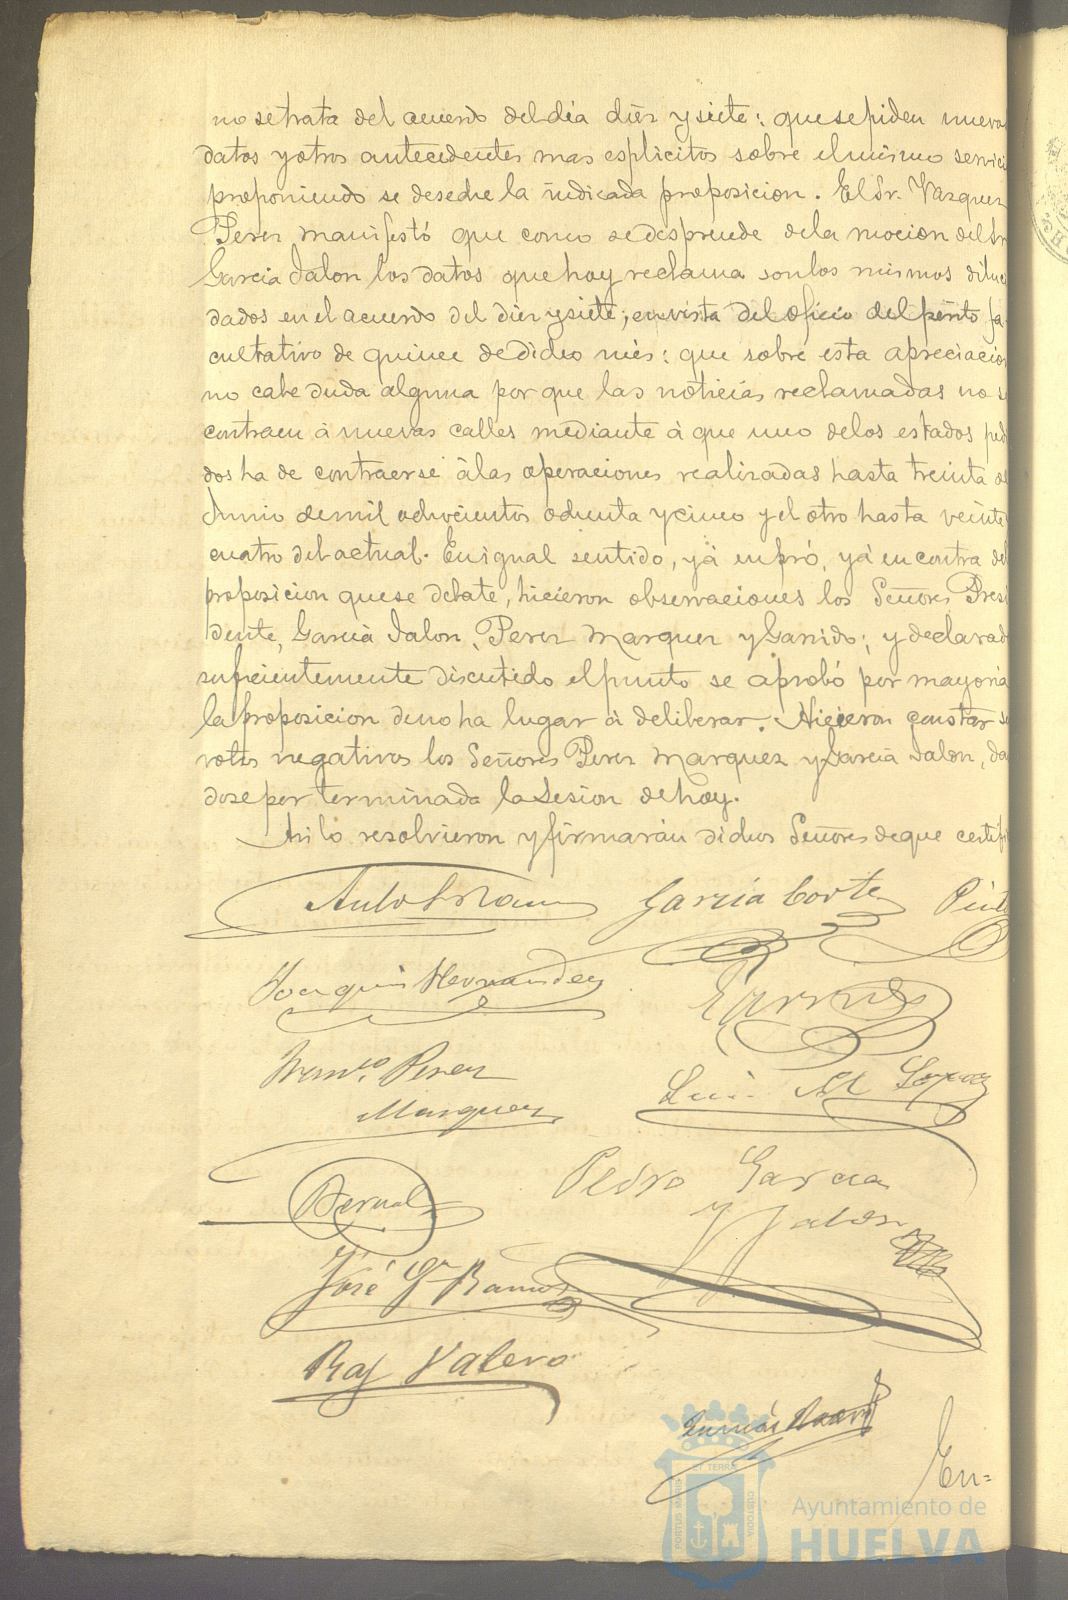 no se trata del acuerdo del dia diez y siete: que se piden nuevos
datos y otros antecedentes mas esplicitos sobre el mismo servici
proponiendo se deseche la indicada proposicion. El Sr. Vazquez
Perez manifestó que como se desprende de la mocion del Sr
Garcia Jalon los datos que hoy reclama son los mismos diluci
dados en el acuerdo del diez y siete, en vista del oficio del perito fa-
cultativo de quince de dicho més: que sobre esta apreciacion
no cabe duda alguna por que las noticias reclamadas no se
contraen á nuevas calles mediante á que uno de los estados pedi
dos ha de contraerse á las operaciones realizadas hasta treinta de
Junio de mil ochocientos ochenta y cinco y el otro hasta veinte
cuatro del actual. En igual sentido, yá en pró, yá en contra de
proposicion que se debate, hicieron observaciones los Señores Presi
dente, Garcia Jalon, Perez Marquez y Garrido; y declarado
suficientemente discutido el punto se aprobó por mayoria
la proposicion de no ha lugar á deliberar. Hicieron constar su
votos negativos los Señores Perez Marquez y Garcia Jalon, dan
dose por terminada la Sesion de hoy.
Asi lo resolvieron y firmarán dichos Señores de que certifi
Garcia Corte Pinto
Joaquin Hernandez Garrido
Franco. Perez
Marquez
Luis M Lopez
Bernal
Pedro Garcia
Jalon
José Ga Ramos
Raf Valero
En=
PORTUS MARIS ET TERRE CUSTODIA
Ayuntamiento de
HUELVA